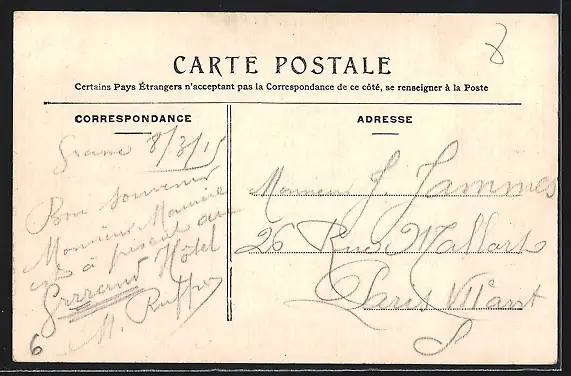 8
CARTE POSTALE
Certains Pays Étrangers n'acceptant pas la Correspondance de ce côté, se renseigner à la Poste
CORRESPONDANCE
ADRESSE
8/3/15
Bon souvenir
Monsieur Maurice
est à présent au
Hôtel
M.
6
Monsieur J. Jammes
26 Rue Mallart
Paris VII